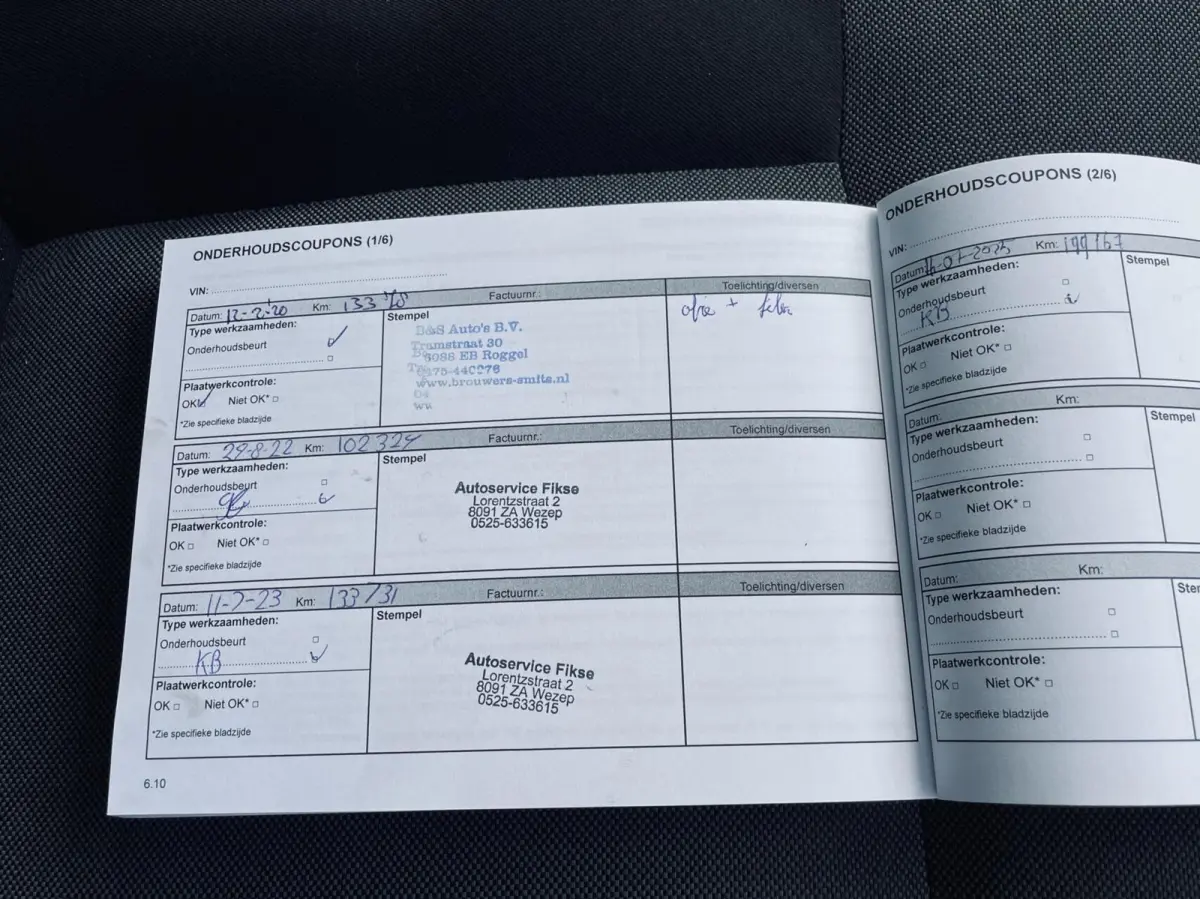 ONDERHOUDSCOUPONS (1/6)
VIN:
Datum: 12-2-20 Km: 133 Factuurnr.: Toelichting/diversen
Type werkzaamheden:
Onderhoudsbeurt
Plaatwerkcontrole:
OK Niet OK*
*Zie specifieke bladzijde
Stempel
B&S Auto's B.V.
Tramstraat 30
6088 EB Roggel
0475-440276
www.brouwers-smits.nl
olie + filter
Datum: 29-8-22 Km: 102324 Factuurnr.: Toelichting/diversen
Type werkzaamheden:
Onderhoudsbeurt
Plaatwerkcontrole:
OK Niet OK*
*Zie specifieke bladzijde
Stempel
Autoservice Fikse
Lorentzstraat 2
8091 ZA Wezep
0525-633615
Datum: 11-7-23 Km: 133731 Factuurnr.: Toelichting/diversen
Type werkzaamheden:
Onderhoudsbeurt
KB
Plaatwerkcontrole:
OK Niet OK*
*Zie specifieke bladzijde
Stempel
Autoservice Fikse
Lorentzstraat 2
8091 ZA Wezep
0525-633615
6.10
ONDERHOUDSCOUPONS (2/6)
VIN:
Datum: 16-07-2025 Km: 199167
Type werkzaamheden:
Onderhoudsbeurt
KB
Plaatwerkcontrole:
OK Niet OK*
*Zie specifieke bladzijde
Stempel
Datum: Km:
Type werkzaamheden:
Onderhoudsbeurt
Plaatwerkcontrole:
OK Niet OK*
*Zie specifieke bladzijde
Stempel
Datum: Km:
Type werkzaamheden:
Onderhoudsbeurt
Plaatwerkcontrole:
OK Niet OK*
*Zie specifieke bladzijde